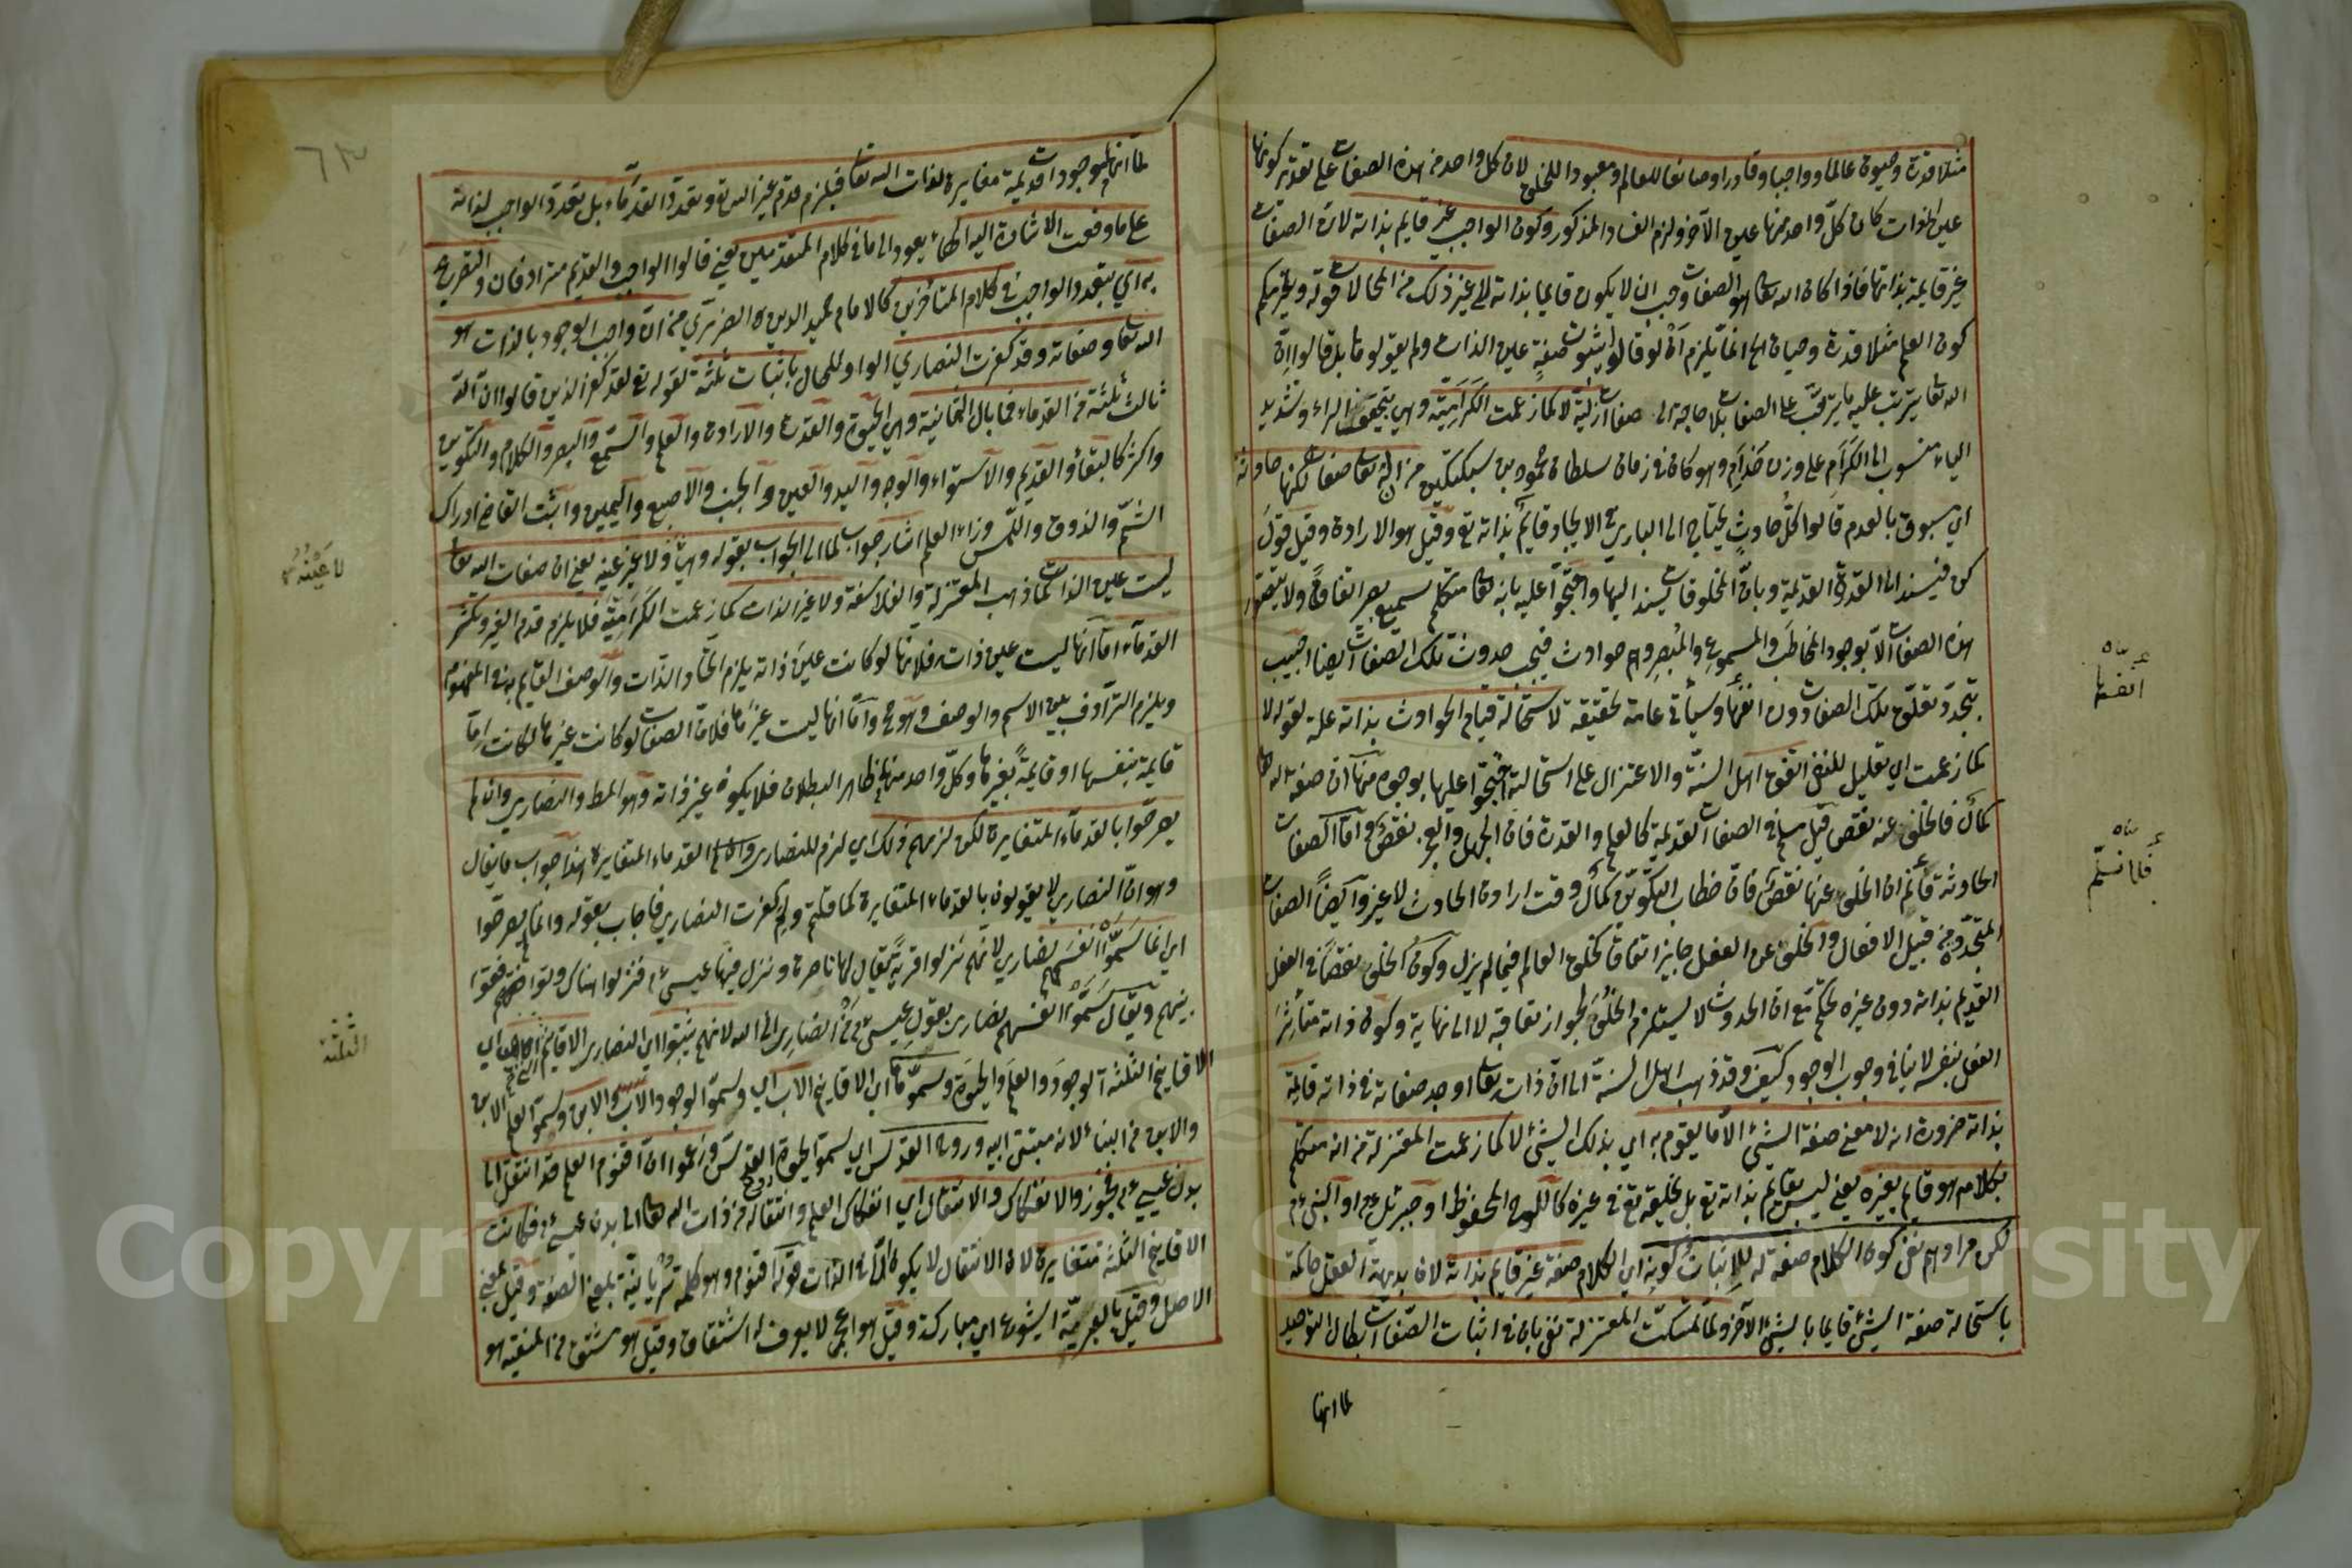 مثلا قدرة وحيوة عالما وواجبا وقادرا وصانعا للعالم ومعبودا للخلق لان كل واحد من هذه الصفات على تقدير كونها
عين الذات كان كل واحد منها عين الآخر ولزم الفساد المذكور وكون الواجب غير قايم بذاته لان الصفات
غير قايمة بذاتها فاذا كان الله تعا هو الصفات وجب ان لا يكون قايما بذاته الى غير ذلك من المحالات قوله ويلزمكم
كون العلم مثلا قدرة وحياة الخ انما يلزم أن لو قالوا بثبوت صفةٍ عين الذات ولم يقولوا بل قالوا ان
الله تعا يترتب عليه ما يترتب على الصفات بلا حاجة الى صفات ازلية لا كما زعمت الكرامية وهي بتخفيف الراء وتشديد
الياء منسوب الى الكرام على وزن حذام وهو كان في زمان سلطان محمود بن سبكتكين من ان له تعا صفات لكنها حادثة
اي مسبوق بالعدم قالوا كل حادثٍ يحتاج الى الباري في الايجاد قايم بذاته تع وقيل هو الارادة وقيل قول
كن فيسند الى القدرة القديمة وباق المخلوقات يسند اليها واحتجوا عليه بانه تعا متكلم سميع بصير اتفاقا ولا يتصور
هذه الصفات الا بوجود المخاطب والمسموع والمبصر وهم حوادث فيجب حدوث تلك الصفات ايضا اجيب
بتجدد تعلق تلك الصفات دون انفسها وسيأتى عامة تحقيقه لاستحالة قيام الحوادث بذاته علة لقوله لا
كما زعمت اي تعليل للنفي اتفق اهل السنة والاعتزال على استحالته احتجوا عليها بوجوه منها ان صفة الله تعا
كمال فالخلو عنه نقص قيل مسلم في الصفات القديمة كالعلم والقدرة فان الجهل والعجز نقص واما الصفات
الحادثة فلا نم ان الخلو عنها نقص فان خطاب التكوين كمال وقت ارادة الحادث لا غير وايضا الصفات
المتجددة من قبيل الافعال والخلو عن الفعل جايز اتفاقا كخلق العالم فيما لم يزل وكون الخلو نقصا في الفعل
القديم بذاته دون غيره تحكم مع ان الحدوث لا يستلزم الخلو لجواز تعاقبه لا الى نهاية وكون ذاته متأثرا
الفعل بنفسه لا ينافي وجوب الوجود كيف وقد ذهب اهل السنة الى ان ذات تعا اوجد صفاته في ذاته قايمة
بذاته ضرورة انه لا معنى صفة الشيء الا ما يقوم به اي بذلك الشيء لا كما زعمت المعتزلة من انه متكلم
بكلام هو قايم بغيره يعني ليس بقايم بذاته تع بل بخلقه تع في غيره كاللوح المحفوظ او جبرئيل ع م او النبي ع م
لكن مرادهم نفي كون الكلام صفة له لا اثبات كونه اي الكلام صفة غير قايم بذاته لان بديهة العقل حاكمة
باستحالة صفة الشيء قايما بالشيء الآخر ولما تمسكت المعتزلة نفي بان في اثبات الصفات ابطال التوحيد
لما انها
أنفسها
فلا نسلم
لما انها موجودات قديمة مغايرة لذات الله تعا فيلزم قدم غير الله تع وتعدد القدماء بل تعدد الواجب لذاته
على ما وقعت الاشارة اليه الهاء يعود الى ما في كلام المتقدمين يعني قالوا الواجب والقديم مترادفان والتصريح
به اي بتعدد الواجب في كلام المتأخرين كالامام حميد الدين الضريري من ان واجب الوجود بالذات هو
الله تعا وصفاته وقد كفرت النصارى الواو للحال باثبات ثلثة لقوله تع لقد كفر الذين قالوا ان الله
ثالث ثلثة من القدماء فما بال الثمانية وهي الحيوة والقدرة والارادة والعلم والسمع والبصر والكلام والتكوين
واكثر كالبقاء والقديم والاستواء والوجه واليد والعين والجنب والاصبع واليمين واثبت القاضي ادراك
الشم والذوق واللمس وراء العلم اشار جواب لما الى الجواب بقوله وهي لا هو ولا غير عينه يعني ان صفات الله تعا
ليست عين الذات كما ذهب المعتزلة والفلاسفة ولا غير الذات كما زعمت الكرامية فلا يلزم قدم الغير وتكثر
القدماء اما انها ليست عين ذاته فلانها لو كانت عين ذاته يلزم اتحاد الذات والوصف القايم به في المفهوم
ويلزم الترادف بين الاسم والوصف وهو مح واما انها ليست غيرها فلان الصفات لو كانت غيرها لكانت اما
قايمة بنفسها او قايمة بغيرها وكل واحد منها ظاهر البطلان فلا يكون غير ذاته وهو المط والنصارى وان لم
يصرحوا بالقدماء المتغايرة لكن لزمهم ذلك اي لزم للنصارى القدماء المتغايرة هذا جواب ما يقال
وهو ان النصارى لا يقولون بالقدماء المتغايرة كما قلتم ولم كفرت النصارى فاجاب بقوله وان لم يصرحوا
اي انما سموا انفسهم نصارى لانهم نزلوا قرية يقال لها ناصرة ونزل فيها عيسى ع م فنزلوا هناك وتواضعوا
بينهم ويقال سموا انفسهم نصارى بقول عيسى ع م من انصاري الى الله لانهم يثبتوا اي النصارى الاقانيم اي
الاقانيم الثلثة الوجود والعلم والحيوة وسموها اي الاقانيم الاب اي وسموا الوجود الاب والابن وسموا العلم الابن
والابن من البناء لانه مبتنى ابيه وروح القدس اي سموا الحيوة روح القدس وزعموا ان اقنوم العلم قد انتقل الى
بدن عيسى ع م فجوزوا الانفكاك والانتقال اي انفكاك العلم وانتقاله من ذات الله تعا الى بدن عيسى ع م فكانت
الاقانيم الثلثة متغايرة لان الانتقال لا يكون الا في الذات قوله اقنوم وهو كلمة سريانية بمعنى الصفة وقيل بمعنى
الاصل وقيل بالعربية اليشوع اي مباركة وقيل هو اعجمي لا يعرف له اشتقاق وقيل هو مشتق من
لا عينه
الثلثة